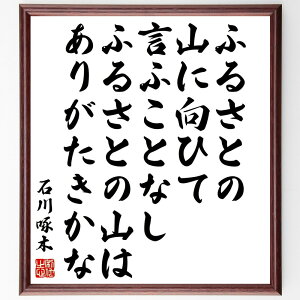 ふるさとの
山に向ひて
言ふことなし
ふるさとの山は
ありがたきかな
石川啄木